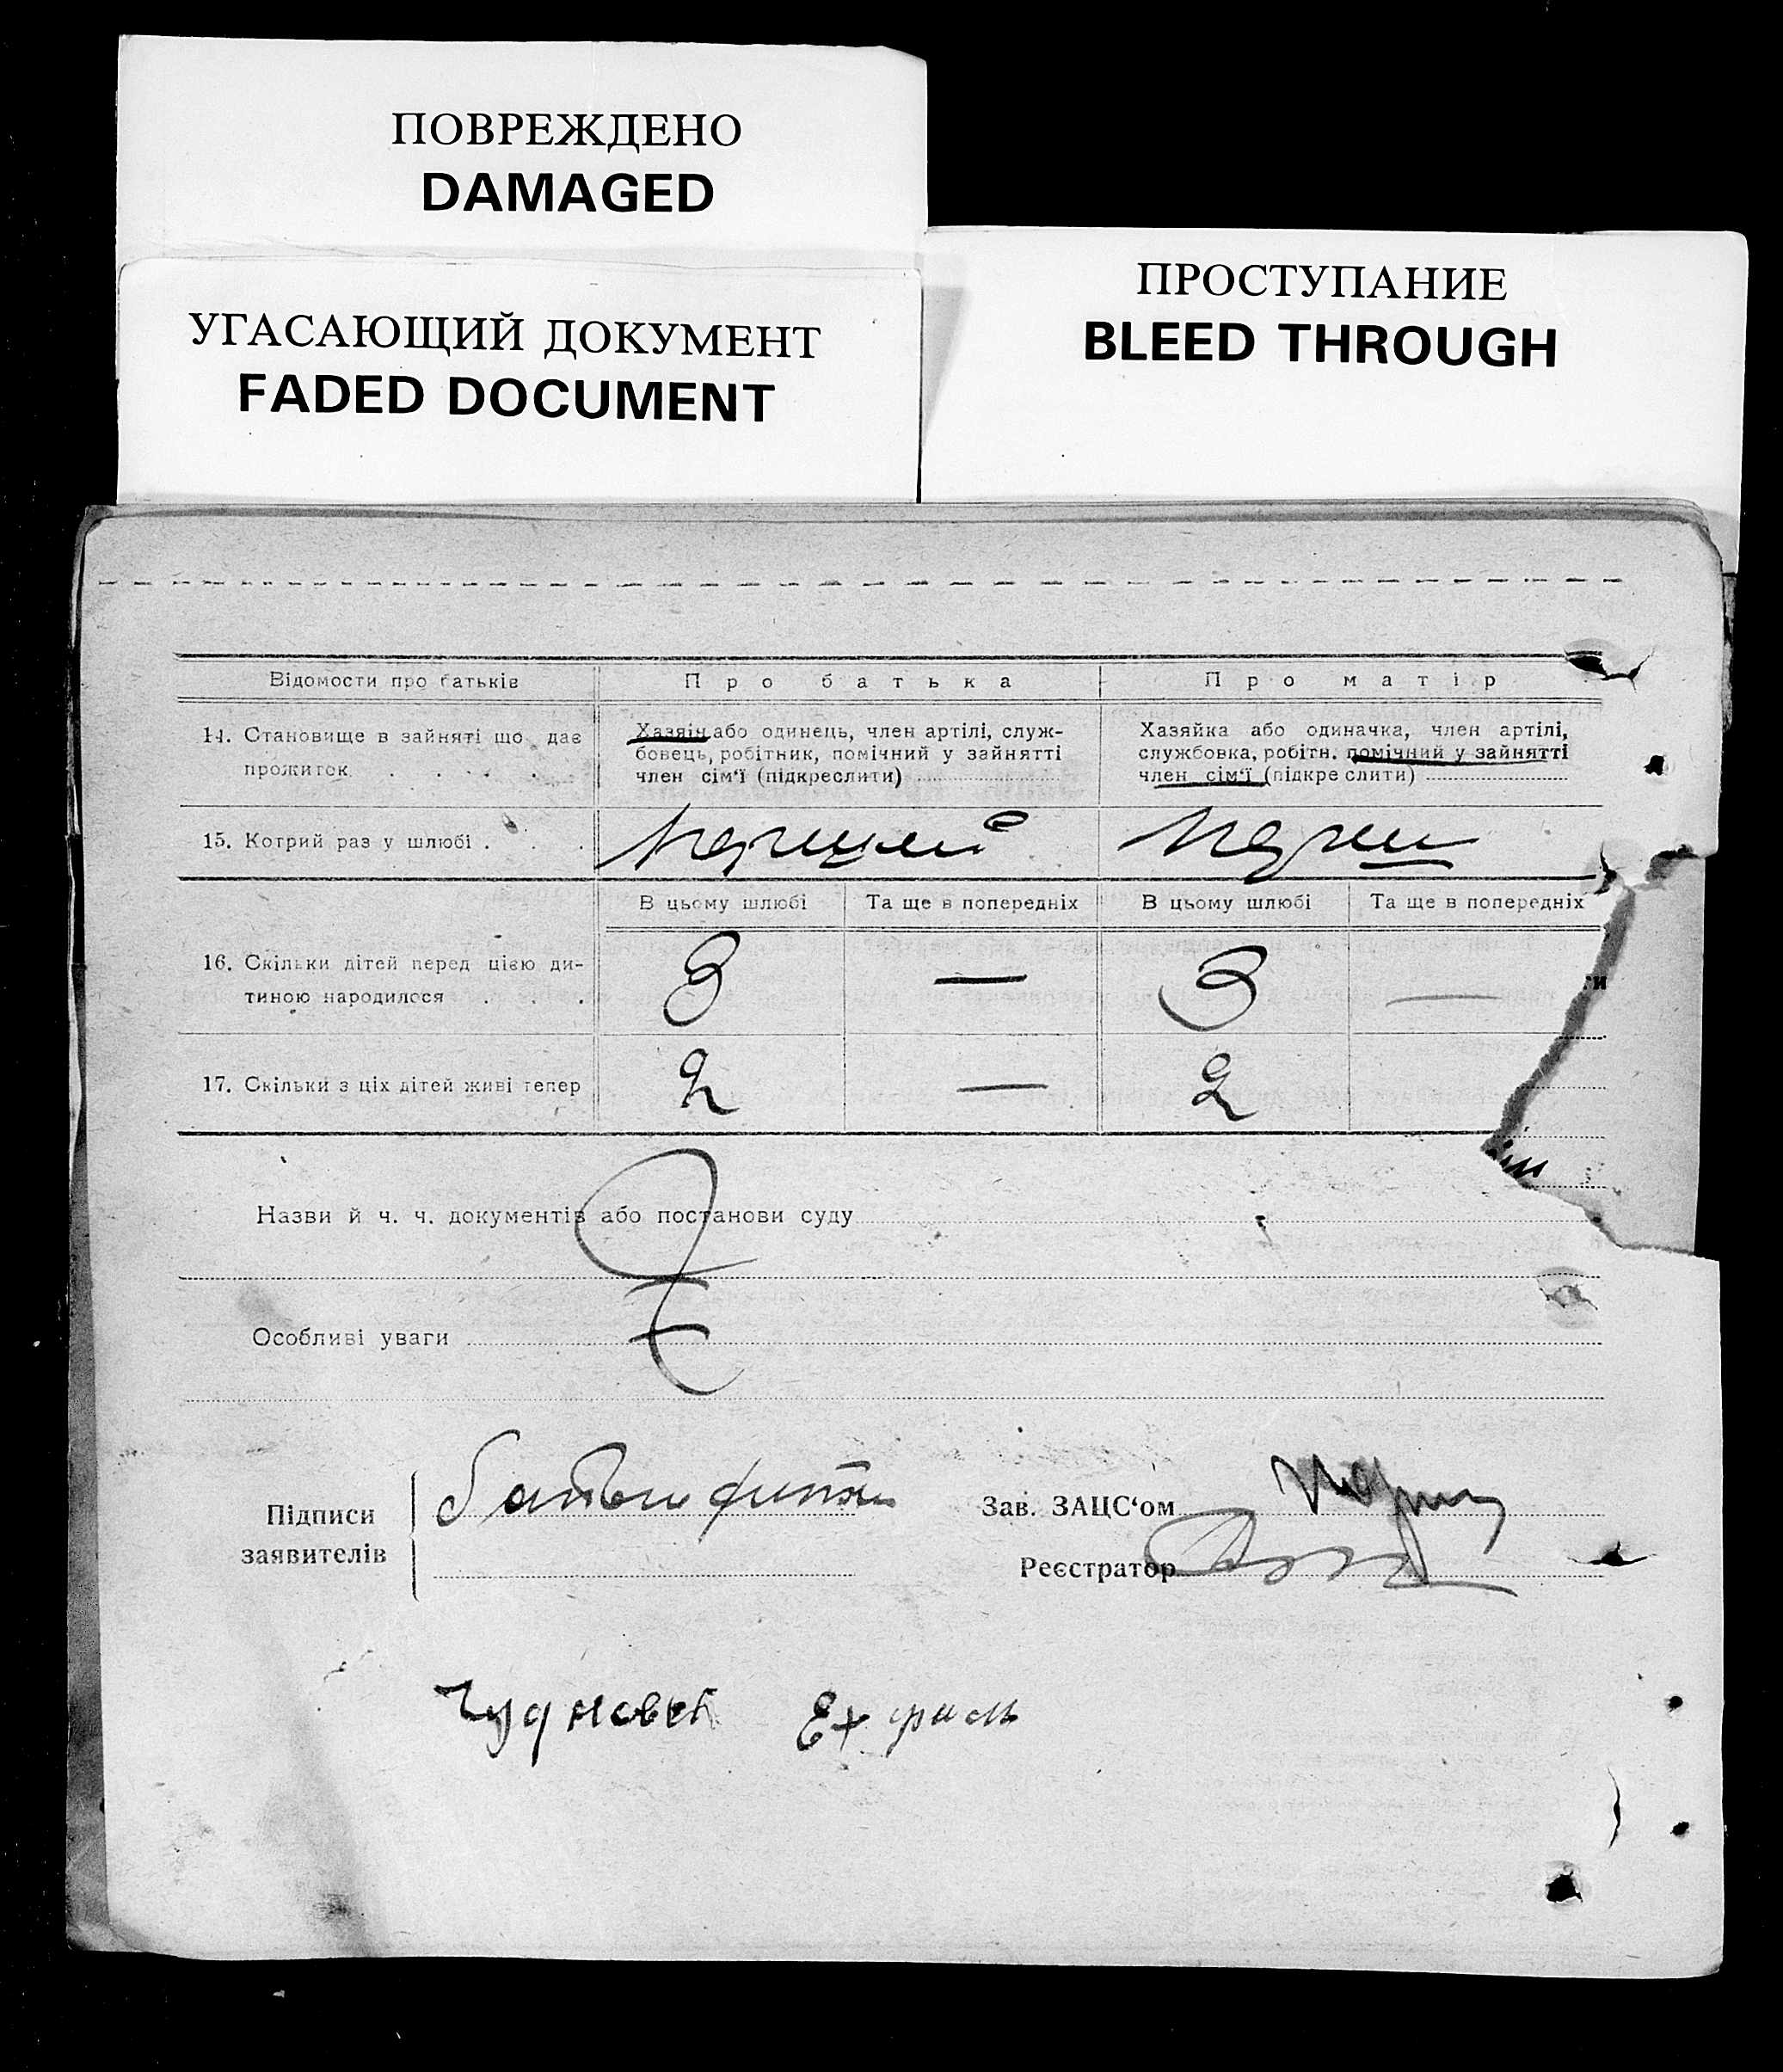 ПОВРЕЖДЕНО
DAMAGED
УГАСАЮЩИЙ ДОКУМЕНТ
FADED DOCUMENT
ПРОСТУПАНИЕ
BLEED THROUGH
Відомости про батьків
Про батька
Про матір
14. Становище в зайняті що дає
прожиток . . . . .
Хазяїн або одинець, член артілі, служ-
бовець, робітник, помічний у зайнятті
член сім'ї (підкреслити)
Хазяйка або одиначка, член артілі,
службовка, робітн. помічний у зайнятті
член сім'ї (підкреслити)
15. Котрий раз у шлюбі . . .
В цьому шлюбі
Та ще в попередніх
В цьому шлюбі
Та ще в попередніх
16. Скільки дітей перед цією ди-
тиною народилося . . .
3
—
3
—
17. Скільки з ціх дітей живі тепер
2
—
2
Назви й ч. ч. документів або постанови суду
Особливі уваги
Підписи
заявителів
Зав. ЗАЦС'ом
Реєстратор